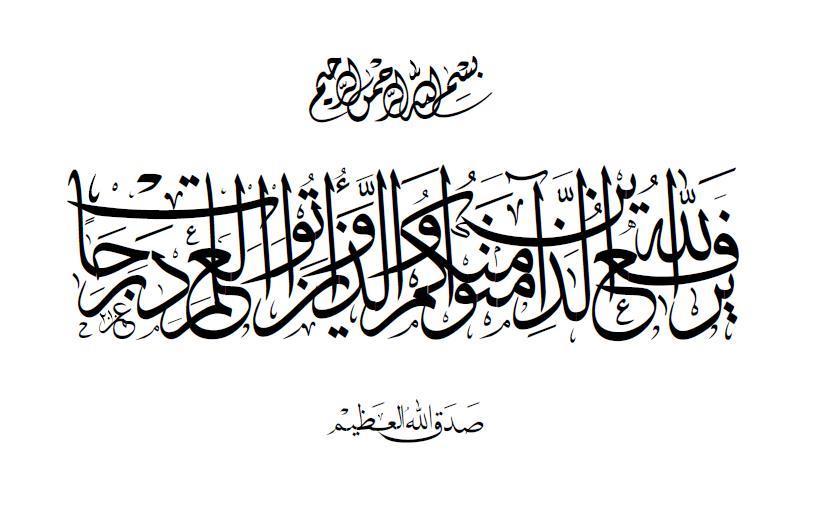 بسم الله الرحمن الرحيم
يرفع الله الذين آمنوا منكم والذين أوتوا العلم درجات
صدق الله العظيم